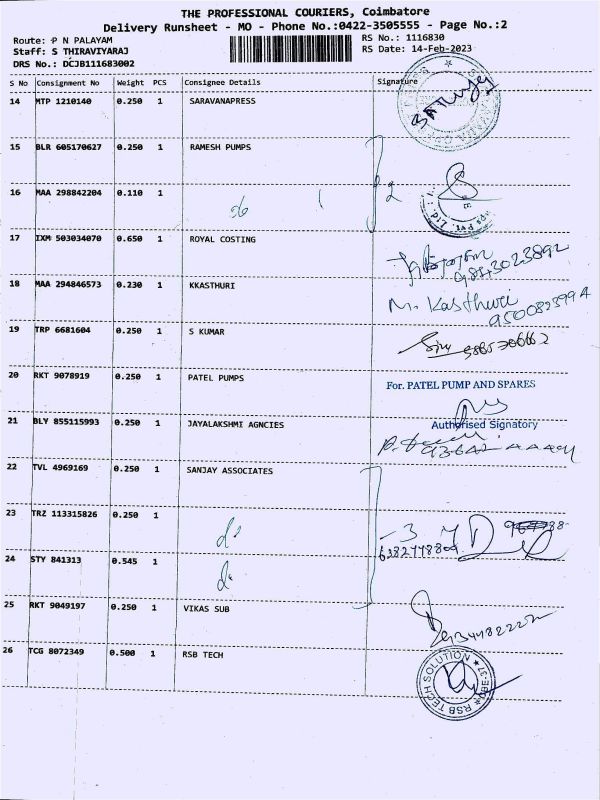 THE PROFESSIONAL COURIERS, Coimbatore
Delivery Runsheet - MO - Phone No.:0422-3505555 - Page No.:2
Route: P N PALAYAM
RS No.: 1116830
Staff: S THIRAVIYARAJ
RS Date: 14-Feb-2023
DRS No.: DCJB111683002
S No Consignment No Weight PCS Consignee Details Signature
14 MTP 1210140 0.250 1 SARAVANAPRESS
15 BLR 605170627 0.250 1 RAMESH PUMPS
16 MAA 298842204 0.110 1
17 IXM 503034070 0.650 1 ROYAL COSTING
9843023892
18 MAA 294846573 0.230 1 KKASTHURI
M. Kasthuri
19 TRP 6681604 0.250 1 S KUMAR
20 RKT 9078919 0.250 1 PATEL PUMPS
For. PATEL PUMP AND SPARES
Authorised Signatory
21 BLY 855115993 0.250 1 JAYALAKSHMI AGNCIES
22 TVL 4969169 0.250 1 SANJAY ASSOCIATES
23 TRZ 113315826 0.250 1
24 STY 841313 0.545 1
25 RKT 9049197 0.250 1 VIKAS SUB
26 TCG 8072349 0.500 1 RSB TECH
RSB TECH SOLUTION